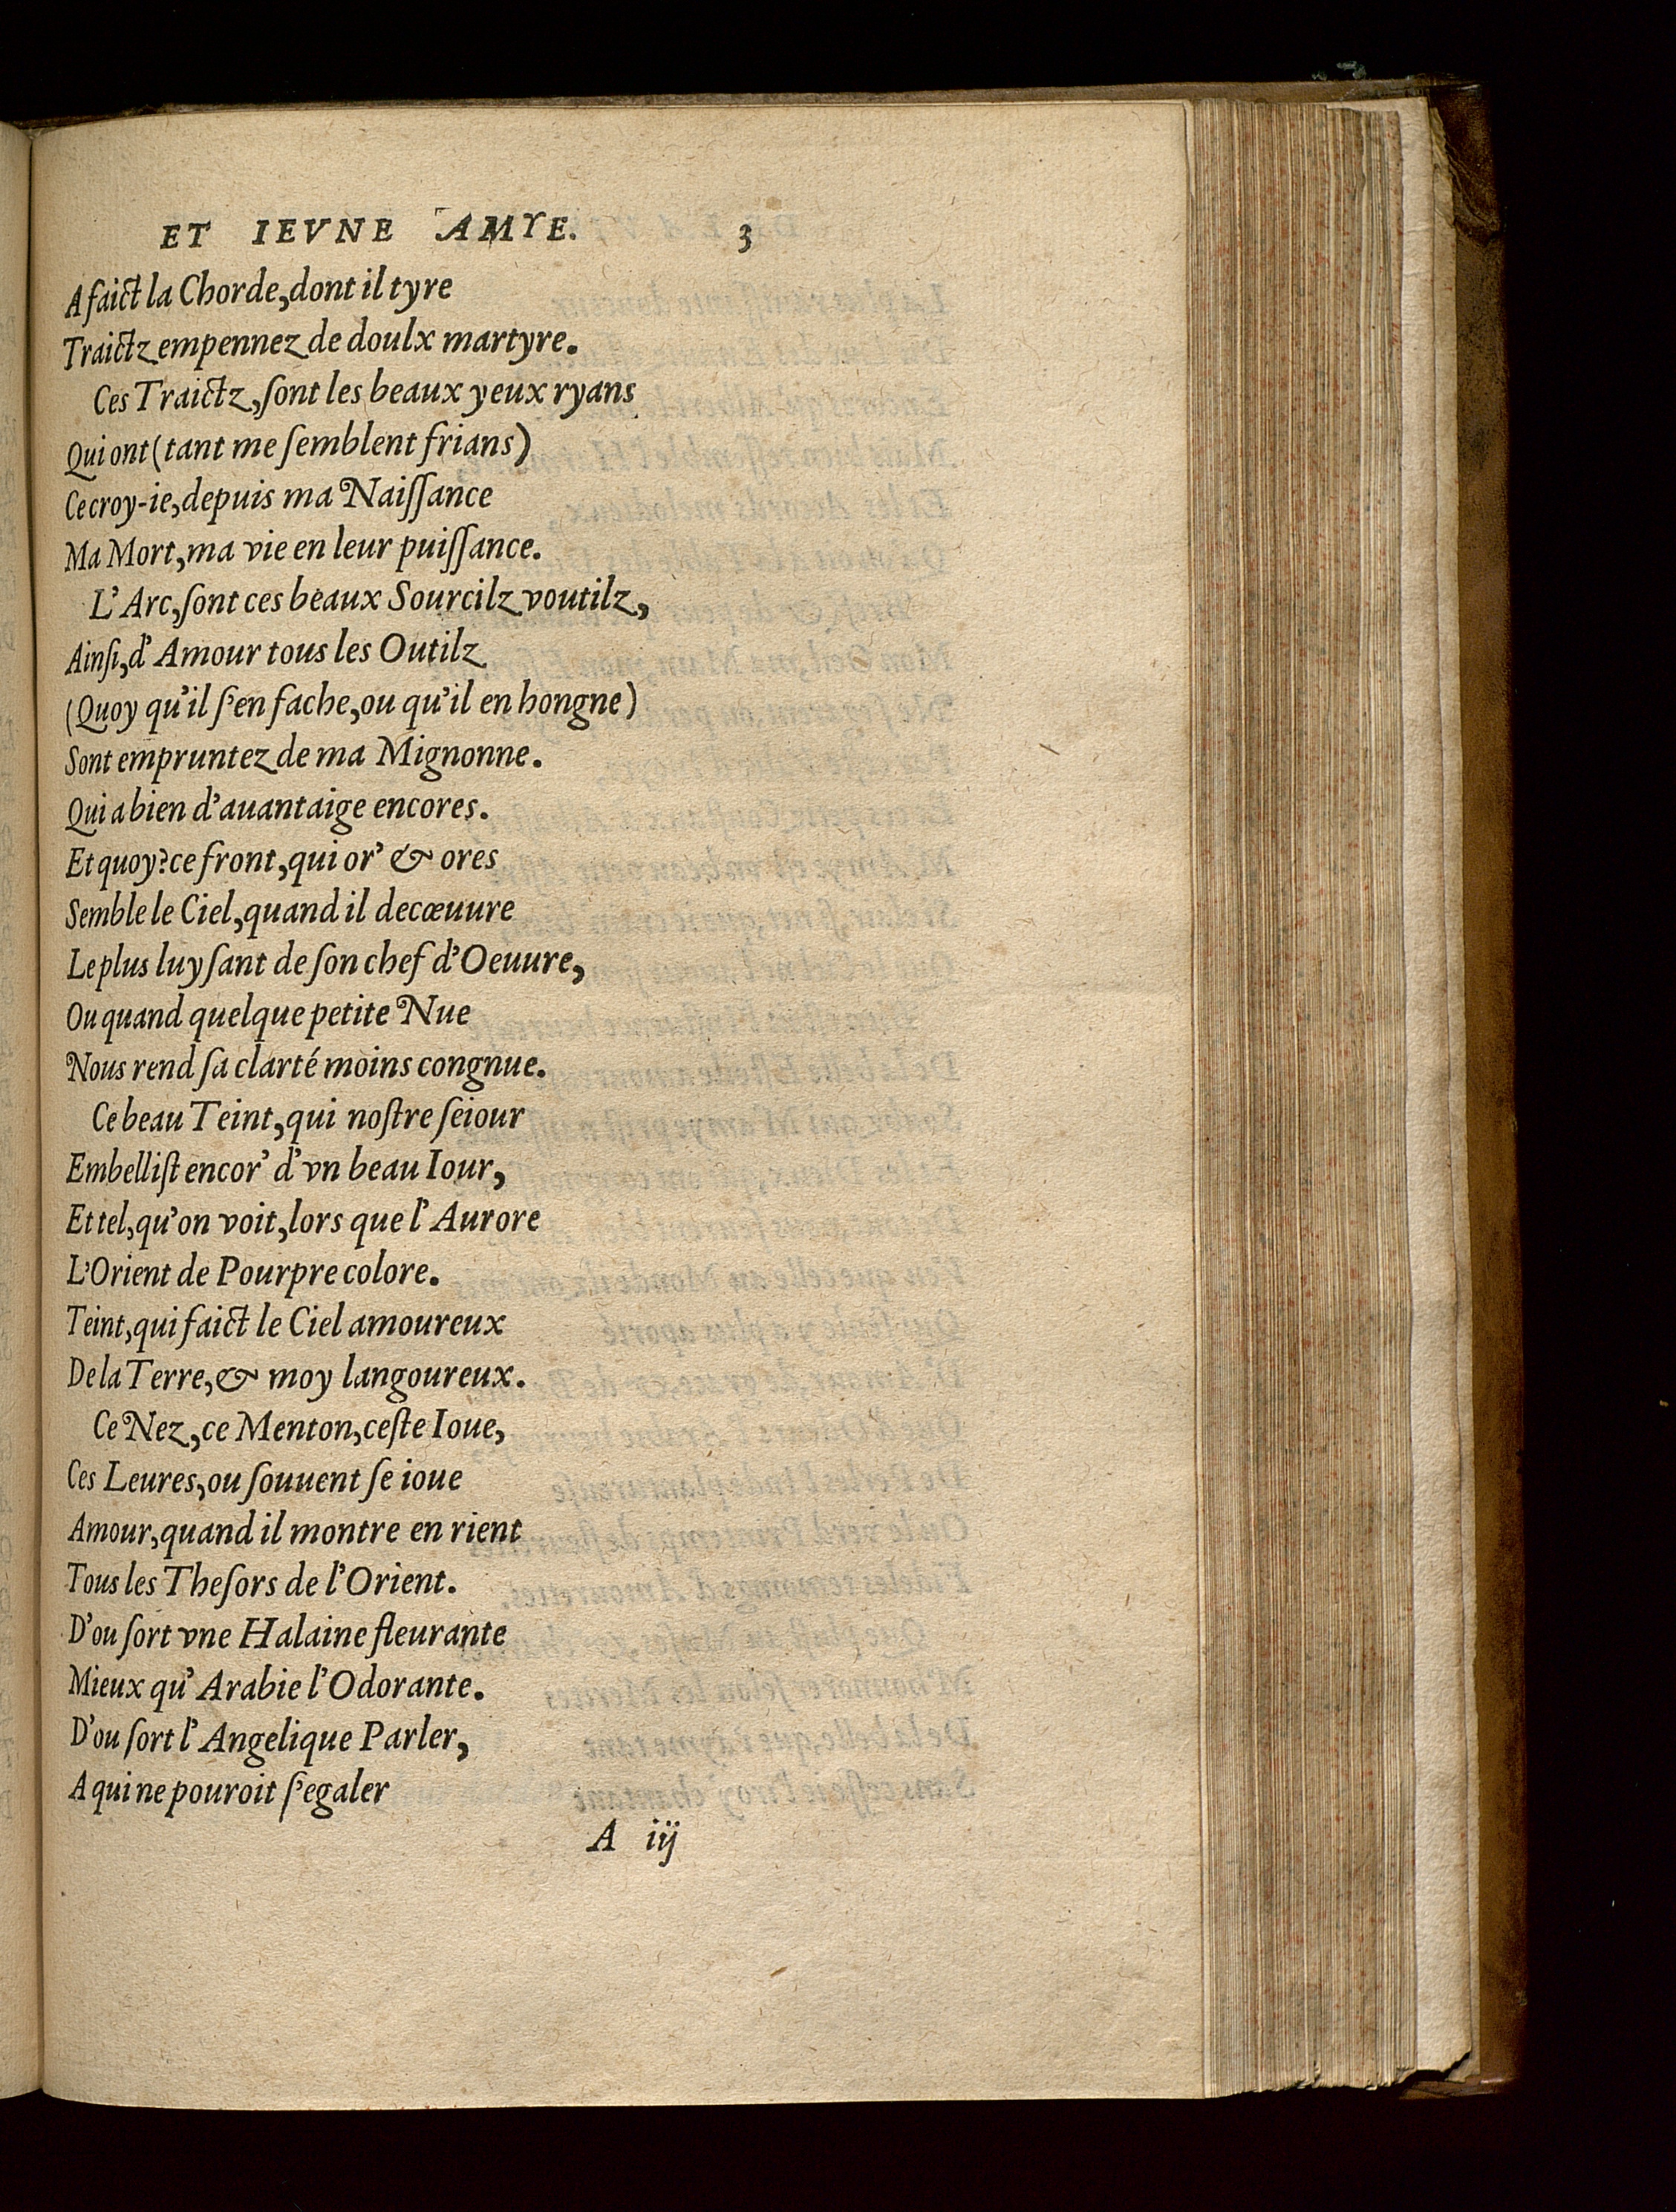 ET IEVNE AMYE. 3
A faict la Chorde, dont il tyre
Traictz empennez de doulx martyre.
Ces Traictz, ſont les beaux yeux ryans
Qui ont (tant me ſemblent frians)
Ce croy-ie, depuis ma Naiſſance
Ma Mort, ma vie en leur puiſſance.
L'Arc, ſont ces beaux Sourcilz voutilz,
Ainſi, d'Amour tous les Outilz
(Quoy qu'il ſ'en fache, ou qu'il en hongne)
Sont empruntez de ma Mignonne.
Qui a bien d'auantaige encores.
Et quoy? ce front, qui or' & ores
Semble le Ciel, quand il decœuure
Le plus luyſant de ſon chef d'Oeuure,
Ou quand quelque petite Nue
Nous rend ſa clarté moins congnue.
Ce beau Teint, qui noſtre ſeiour
Embelliſt encor' d'vn beau Iour,
Et tel, qu'on voit, lors que l'Aurore
L'Orient de Pourpre colore.
Teint, qui faict le Ciel amoureux
De la Terre, & moy langoureux.
Ce Nez, ce Menton, ceſte Ioue,
Ces Leures, ou ſouuent ſe ioue
Amour, quand il montre en rient
Tous les Theſors de l'Orient.
D'ou ſort vne Halaine fleurante
Mieux qu'Arabie l'Odorante.
D'ou ſort l'Angelique Parler,
A qui ne pouroit ſ'egaler
A iij